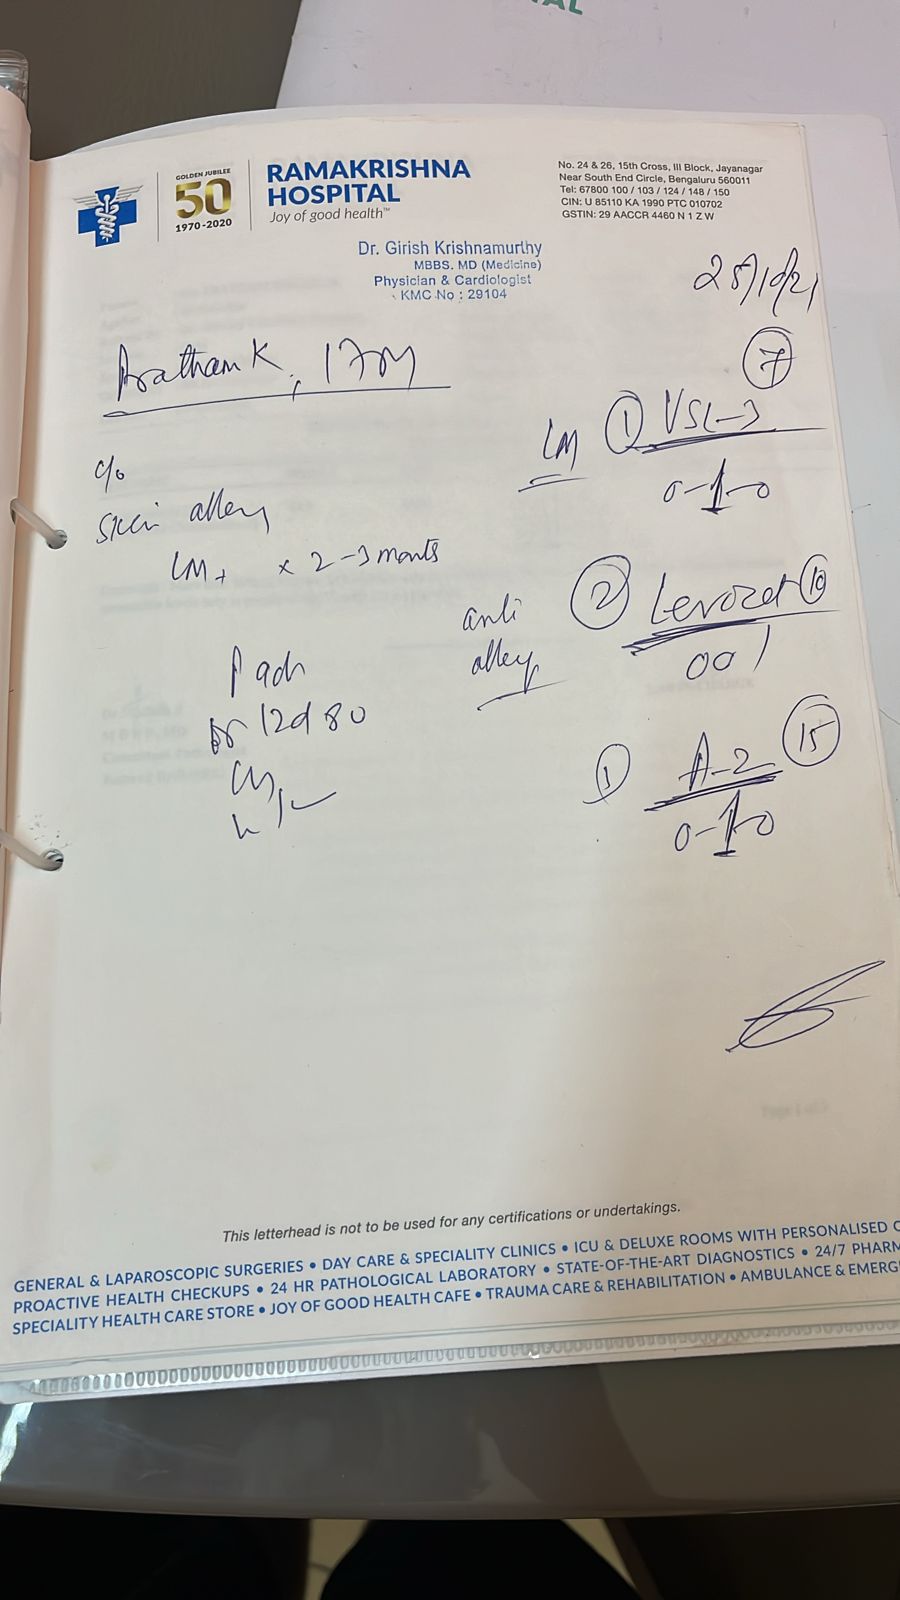 GOLDEN JUBILEE
50
1970-2020
RAMAKRISHNA
HOSPITAL
Joy of good health™
No. 24 & 26, 15th Cross, III Block, Jayanagar
Near South End Circle, Bengaluru 560011
Tel: 67800 100 / 103 / 124 / 148 / 150
CIN: U 85110 KA 1990 PTC 010702
GSTIN: 29 AACCR 4460 N 1 Z W
Dr. Girish Krishnamurthy
MBBS. MD (Medicine)
Physician & Cardiologist
KMC No : 29104
Pratham K, 17M
7
LM 1 VSL-3
0-1-0
c/o
skin allergy
LM+ x 2-3 months
anti
allergy
2 Levozet 10
001
P
A-2 15
0-1-0
Page 1 of
This letterhead is not to be used for any certifications or undertakings.
GENERAL & LAPAROSCOPIC SURGERIES • DAY CARE & SPECIALITY CLINICS • ICU & DELUXE ROOMS WITH PERSONALISED C
PROACTIVE HEALTH CHECKUPS • 24 HR PATHOLOGICAL LABORATORY • STATE-OF-THE-ART DIAGNOSTICS • 24/7 PHARM
SPECIALITY HEALTH CARE STORE • JOY OF GOOD HEALTH CAFE • TRAUMA CARE & REHABILITATION • AMBULANCE & EMERG